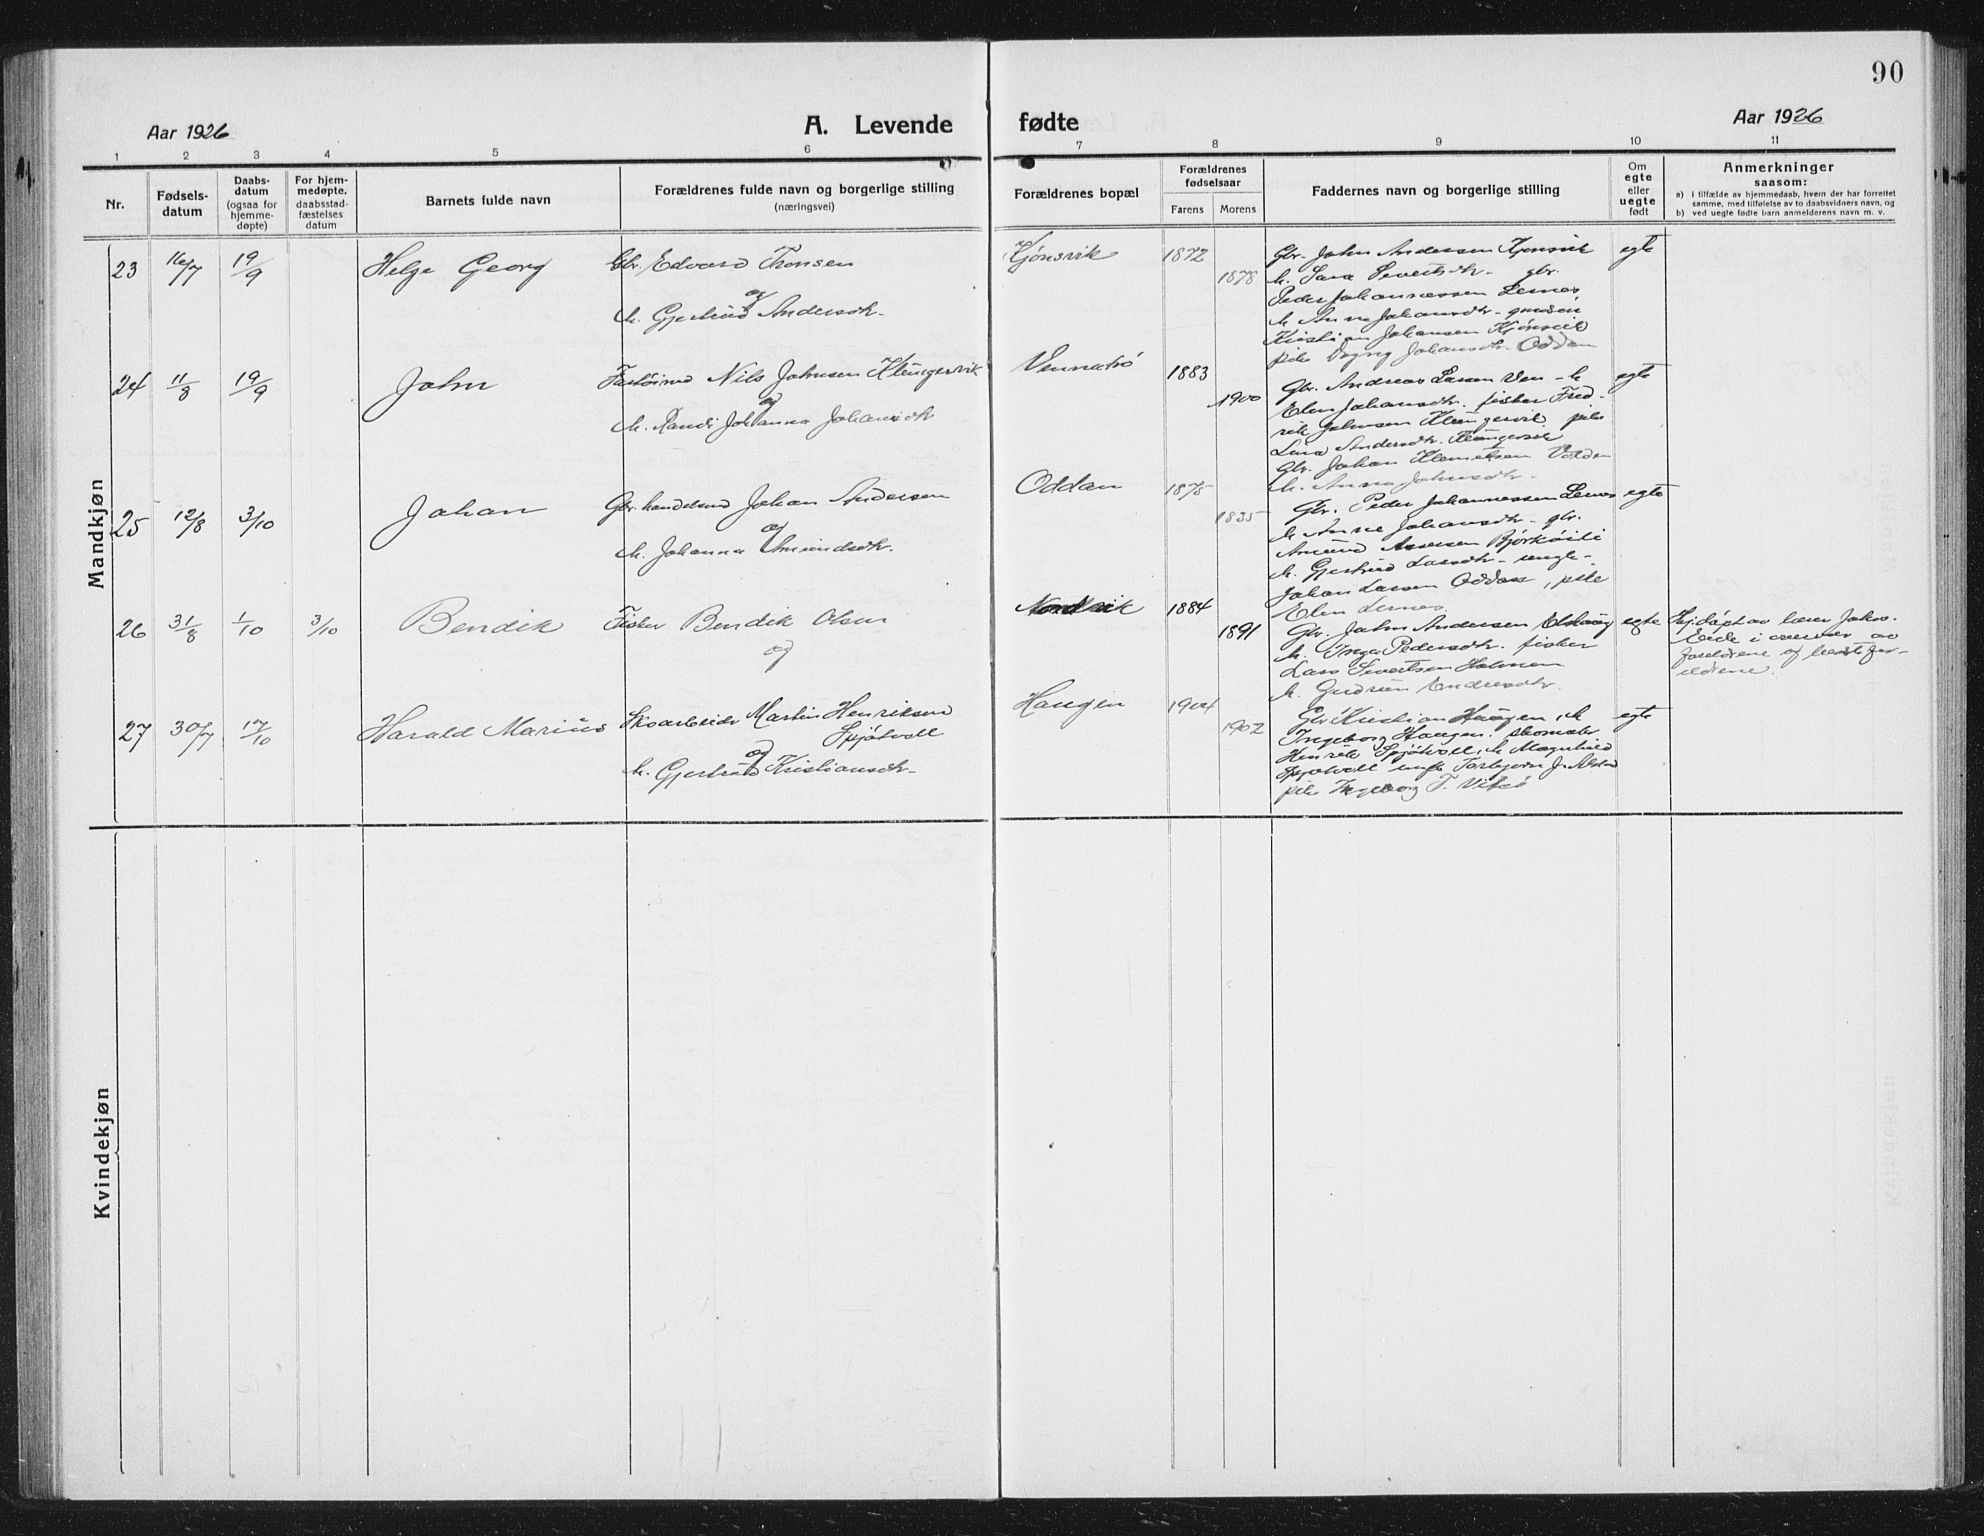 90
Aar 1926
A. Levende fødte
Aar 1926
1 2 3 4 5 6 7 8 9 10 11
Nr.
Fødsels-
datum
Daabs-
datum
(ogsaa for
hjemme-
døpte)
For hjem-
medøpte,
daabsstad-
fæstelses
datum
Barnets fulde navn
Forældrenes fulde navn og borgerlige stilling
(næringsvei)
Forældrenes bopæl
Forældrenes
fødselsaar
Farens Morens
Faddernes navn og borgerlige stilling
Om
egte
eller
uegte
født
Anmerkninger
saasom:
a) i tilfælde av hjemmedaab, hvem der har forrettet
samme, med tilføielse av to daabsvidners navn, og
b) ved uegte fødte barn anmelderens navn m. v.
Mandkjøn
23 16/7 19/9 Helge Georg Gbr. Edvard Tronsen
og
h. Gjertrud Andersdtr.
Kjønsvik 1872 1878
Gbr. John Andersen Kjønsvik
h. Sara Sivertsdtr. gbr.
Peder Johannessen Lernes
h. Anne Johansdtr.
Kristian Johansen Kjønsvik
pike Johansdtr. Oddan
egte
24 11/8 19/9 John Nils Johnsen Klungervik
og
h. Randi Johanna Johansdtr
Vennatrø 1883 1900
Gbr. Andreas Larsen Ven h.
Elen Johansdtr. fisker Fred-
rik Johnsen Klungervik pike
Lina Andersdtr. Klungervik
Gbr. Johan Klemetsen Volden
h. Anna Johnsdtr.
egte
25 12/8 3/10 Johan Gbr. handelsmd Johan Andersen
og
h. Johanna Amundsdtr.
Oddan 1875 1835
Gbr. Peder Johannessen Lernes
h. Anne Johansdtr. gbr.
Amund Assersen Bjørkåsli
h. Gjertrud Larsdtr. ungk.
Johan Larsen Oddan, pike
Elen Lernes
egte
26 31/8 1/10 3/10 Bendik Fisker Bendik Olsen
og
Nordvik 1884 1891
Gbr. John Andersen
h. Inga Pedersdtr. fisker
Lars Sivertsen Holmen
h. Gudrun Andreasdtr.
egte
Hjdøpt av lærer Johs.
Eide i overvær av
foreldrene og
eldrene.
27 30/7 17/10 Harald Marius Skoarbeider Martin Henriksen
Spjøtvoll
og
h. Gjertrud Kristiansdtr.
Haugen 1904 1902
Gbr Kristian Haugen, h.
Ingeborg Haugen. skomaker
Henrik Spjøtvoll, h. Magnhild
Spjøtvoll ungk Torbjørn J.
pike Ingeborg T. Vikø
egte
Kvindekjøn